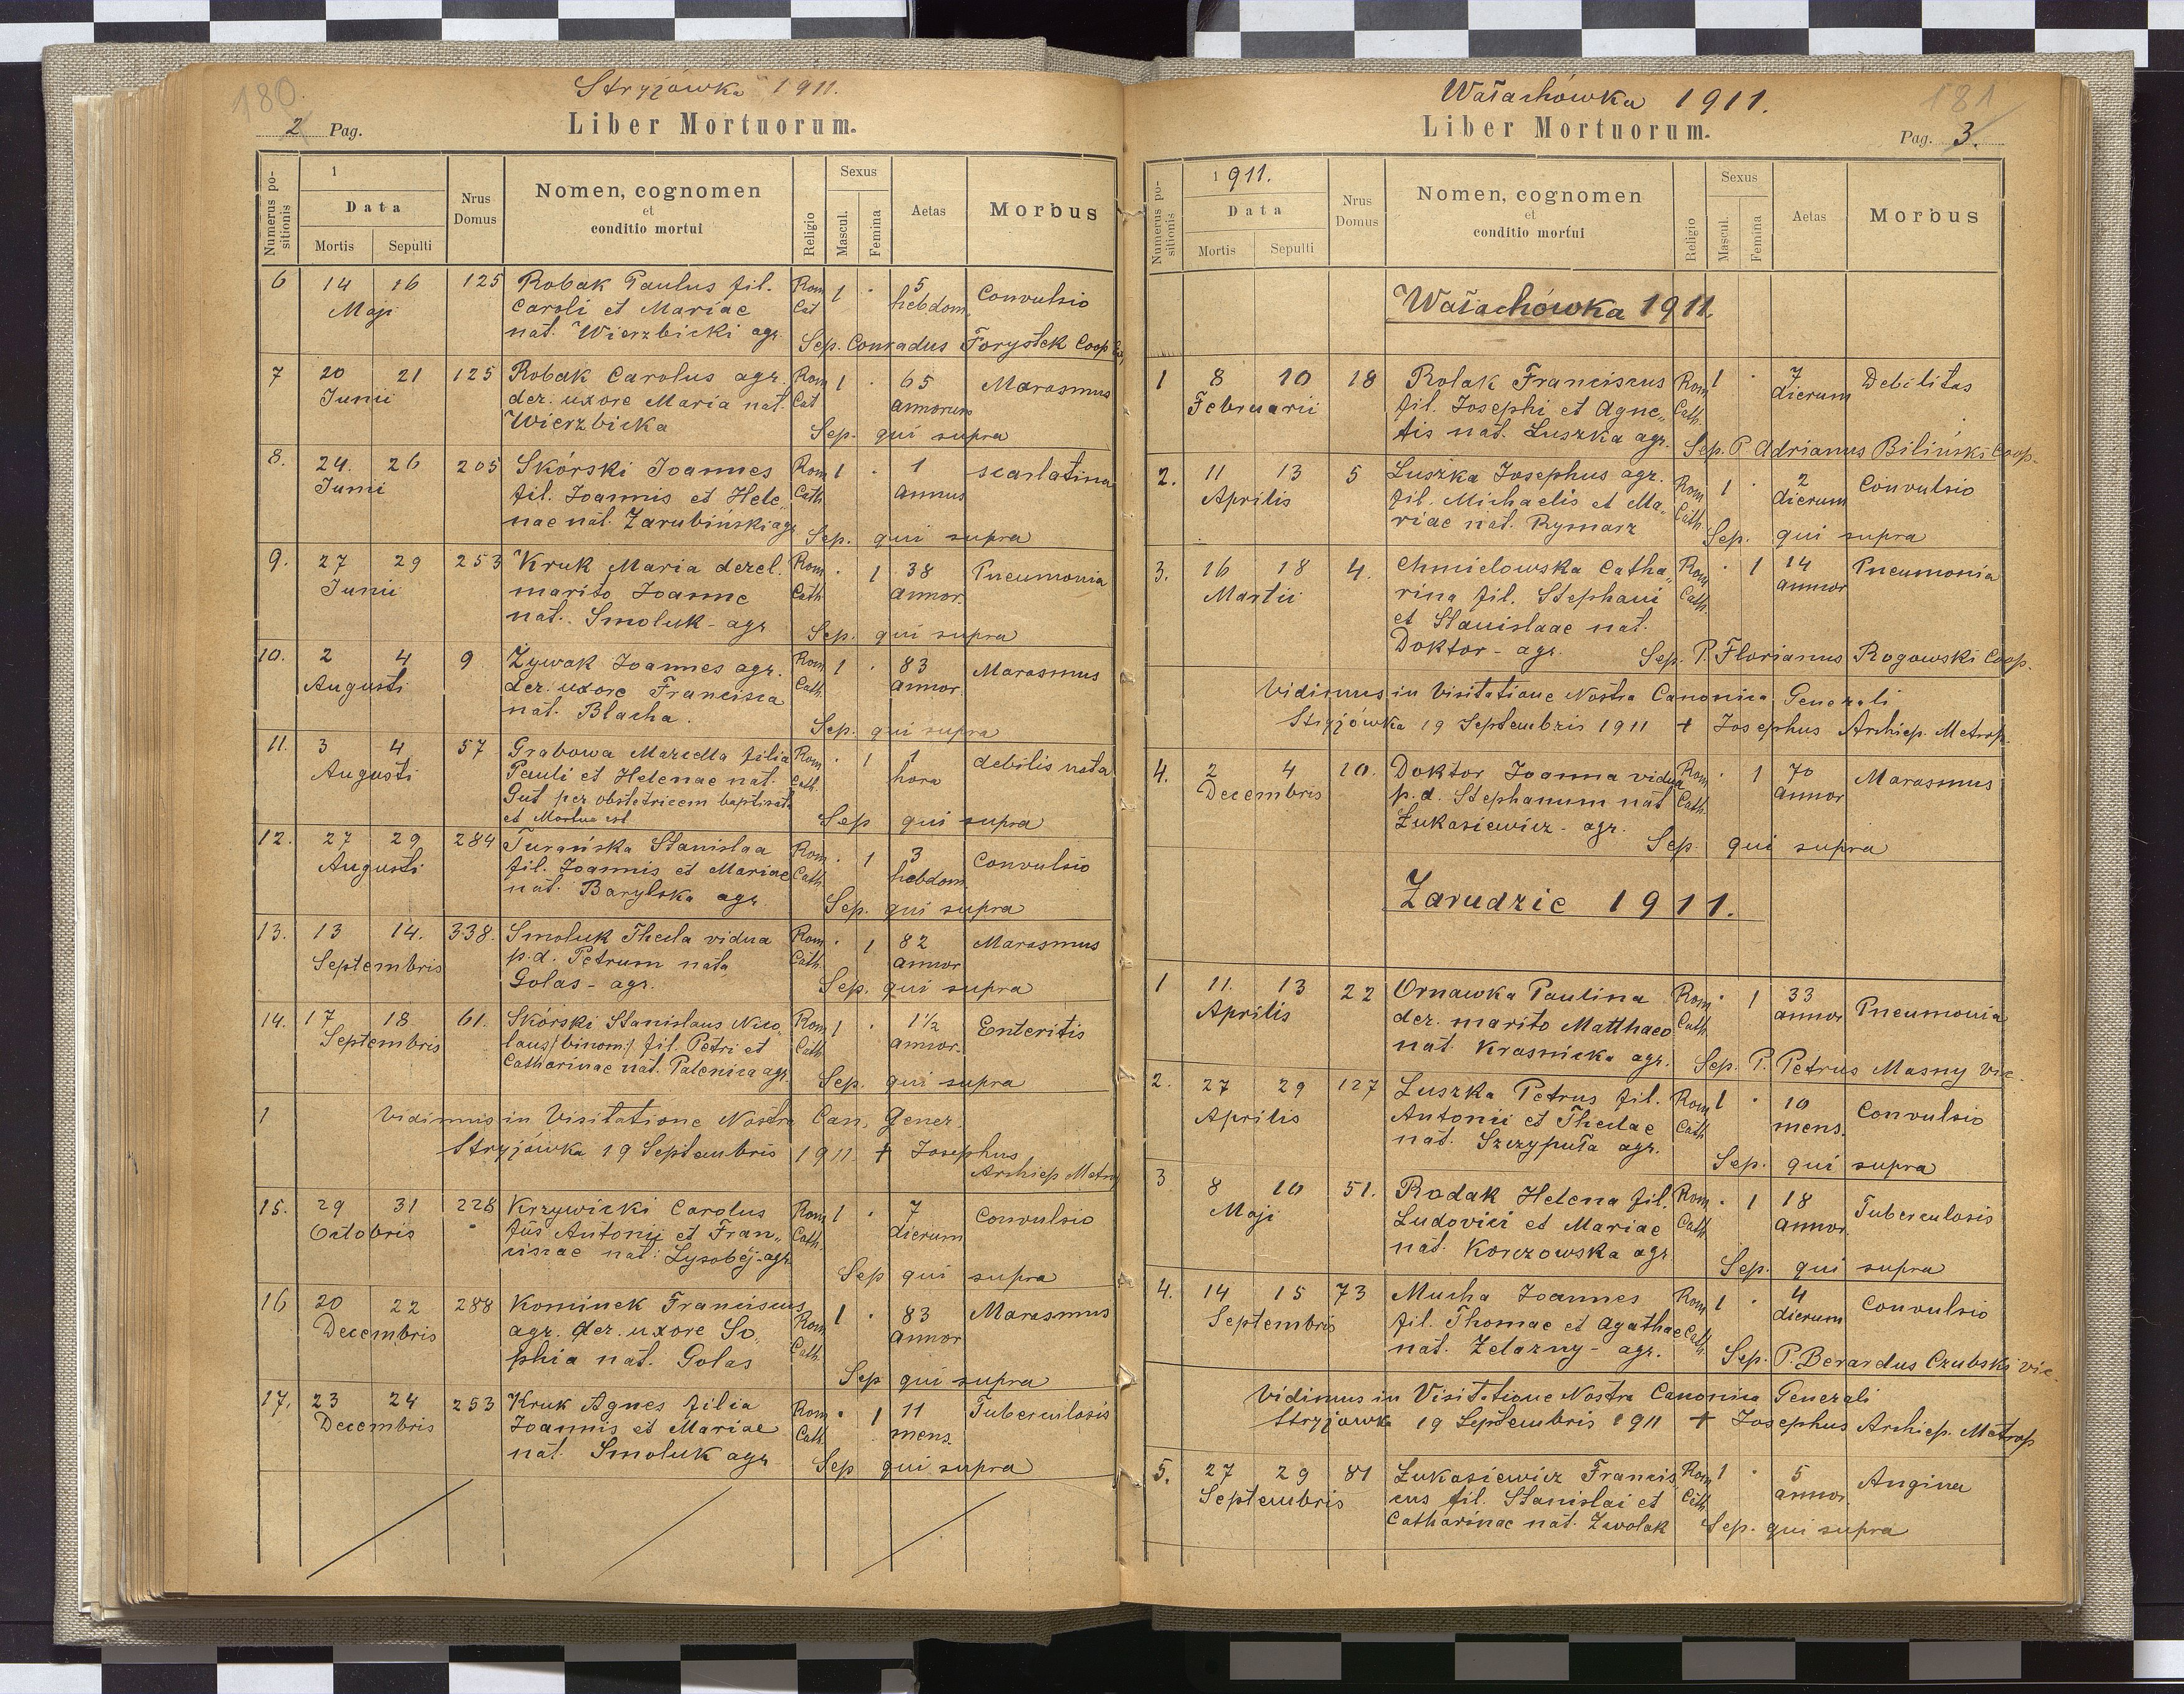 180.
Stryjówka 1911.
2 Pag.
Liber Mortuorum.
Numerus positionis
1
Data
Mortis
Sepulti
Nrus Domus
Nomen, cognomen
et
conditio mortui
Religio
Sexus
Mascul.
Femina
Aetas
Morbus
6 14 16 125 Robak Paulus fil. Rom 1 · 5 Convulsio
Maji Caroli et Mariae Cat hebdom.
nat. Wierzbicki agr. Sep. Conradus Forystek Coop
7 20 21 125 Robak Carolus agr. Rom 1 · 65 Marasmus
Junii der. uxore Maria nat. Cat annorum
Wierzbicka Sep. qui supra
8. 24. 26 205 Skórski Joannes Rom 1 · 1 scarlatina
Junii fil. Joannis et Hele„ Cath annus
nae nat. Zarubiński agr Sep. qui supra
9. 27 29 253 Kruk Maria derel. Rom · 1 38 Pneumonia
Junii marito Joanne Cath annor.
nat. Smoluk - agr Sep. qui supra
10. 2 4 9 Żywak Joannes agr. Rom 1 · 83 Marasmus
Augusti der. uxore Francisca Cath. annor.
nat. Blacha. Sep. qui supra
11. 3 4 57 Grabowa Marcella filia Rom · 1 1 debilis nata
Augusti Pauli et Helenae nat. Cath. hora
Gut per obstetricem baptisata
et Mortua est Sep qui supra
12. 27 29 284 Turańska Stanislaa Rom · 1 3 Convulsio
Augusti fil. Joannis et Mariae Cath hebdom.
nat. Barylska agr. Sep. qui supra
13. 13 14. 338. Smoluk Thecla vidua Rom · 1 82 Marasmus
Septembris p.d. Petrum nata Cath. annor
Golas - agr. Sep. qui supra
14. 17 18 61. Skórski Stanislaus Nico„ Rom 1 · 1½ Enteritis
Septembris laus /:binom:/ fil. Petri et Cath annor.
Catharinae nat. Palenica agr. Sep. qui supra
1 Vidimus in Visitatione Nostra Can. Gener.
Stryjówka 19 Septembris 1911 + Josephus
Archiep Metrop
15. 29 31 228 Krzywicki Carolus Rom 1 · 7 Convulsio
Octobris fius Antonii et Fran„ Cath. dierum
ciscae nat. Lysobéj - agr Sep qui supra
16 20 22 288 Kominek Franciscus Rom 1 · 83 Marasmus
Decembris agr. der. uxore So„ Cath. annor
phia nat. Golas Sep qui supra
17. 23 24 253 Kruk Agnes filia Rom · 1 11 Tuberculosis
Decembris Joannis et Mariae Cath mens.
nat. Smoluk agr Sep qui supra
181
Wałachówka 1911.
Liber Mortuorum.
Pag. 3.
Numerus positionis
1911.
Data
Mortis
Sepulti
Nrus Domus
Nomen, cognomen
et
conditio mortui
Religio
Sexus
Mascul.
Femina
Aetas
Morbus
Wałachówka 1911.
1 8 10 18 Rolak Franciscus Rom 1 · 7 Debilitas
Februarii fil. Josephi et Agne„ Cath. dierum
tis nat. Luszka agr. Sep. P. Adrianus Biliński Coop.
2. 11 13 5 Luszka Josephus agr. Rom 1 · 2 Convulsio
Aprilis fil. Michaelis et Ma„ Cath. dierum
riae nat. Rymarz Sep. qui supra
3. 16 18 4. Chmielowska Catha„ Rom · 1 14 Pneumonia
Martii rina fil. Stephani Cath. annor
et Stanislaae nat.
Doktor - agr. Sep. P. Florianus Rogowski Coop.
Vidimus in Visitatione Nostra Canonica Generali
Stryjówka 19 Septembris 1911 + Josephus Archiep. Metrop.
4. 2 4 10. Doktor Joanna vidua Rom · 1 70 Marasmus
Decembris p.d. Stephanum nat Cath. annor
Łukasiewicz - agr. Sep. qui supra
Zarudzie 1911.
1 11. 13 22 Ornawka Paulina Rom · 1 33 Pneumonia
Aprilis der. marito Matthaeo Cath. annor
nat. Krasnicka agr. Sep. P. Petrus Masny Vic.
2. 27 29 127 Luszka Petrus fil. Rom 1 · 10 Convulsio
Aprilis Antonii et Theclae Cath mens.
nat. Szczyputa agr. Sep. qui supra
3 8 10 51. Radak Helena fil. Rom · 1 18 Tuberculosis
Maji Ludovici et Mariae Cath annor.
nat. Korczowska agr. Sep. qui supra
4. 14 15 73 Mucha Joannes Rom 1 · 4 Convulsio
Septembris fil. Thomae et Agathae Cath dierum
nat. Zelazny - agr. Sep. P. Berardus Czubski vic.
Vidimus in Visitatione Nostra Canonica Generali
Stryjówka 19 Septembris 1911 + Josephus Archiep. Metrop
5. 27 29 81 Łukasiewicz Francis„ Rom 1 · 5 Angina
Septembris cus fil. Stanislai et Cath. annor.
Catharinae nat. Zwolak Sep. qui supra